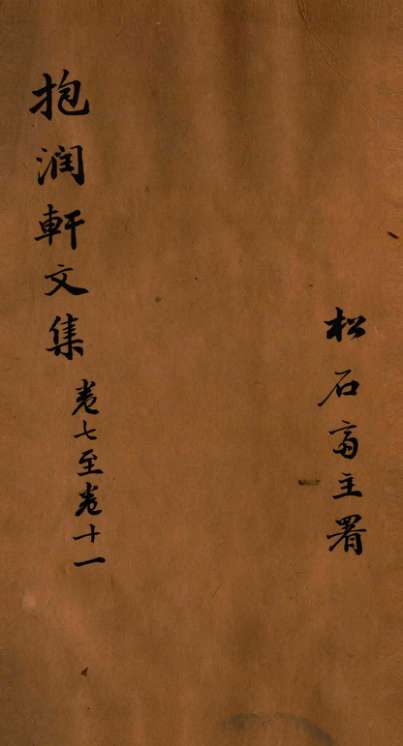 松石斋主署
抱润軒文集
卷七至卷十一